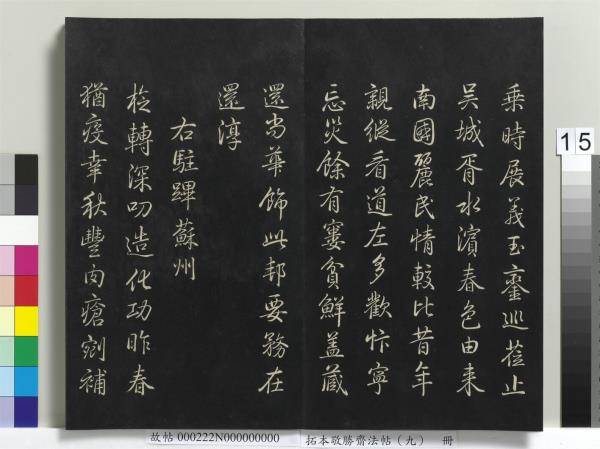 乘時展義玉鑾巡蒞止
吳城胥水濱春色由来
南國麗民情較比昔年
親縱看道左多歡忭寧
忘災餘有窶貧鮮盖藏
還尚華飾此邦要務在
還淳
右駐蹕蘇州
桉轉深叨造化功昨春
猶疫幸秋豐肉瘡剜補
15
故帖 000222N000000000 拓本敬勝齋法帖（九） 冊